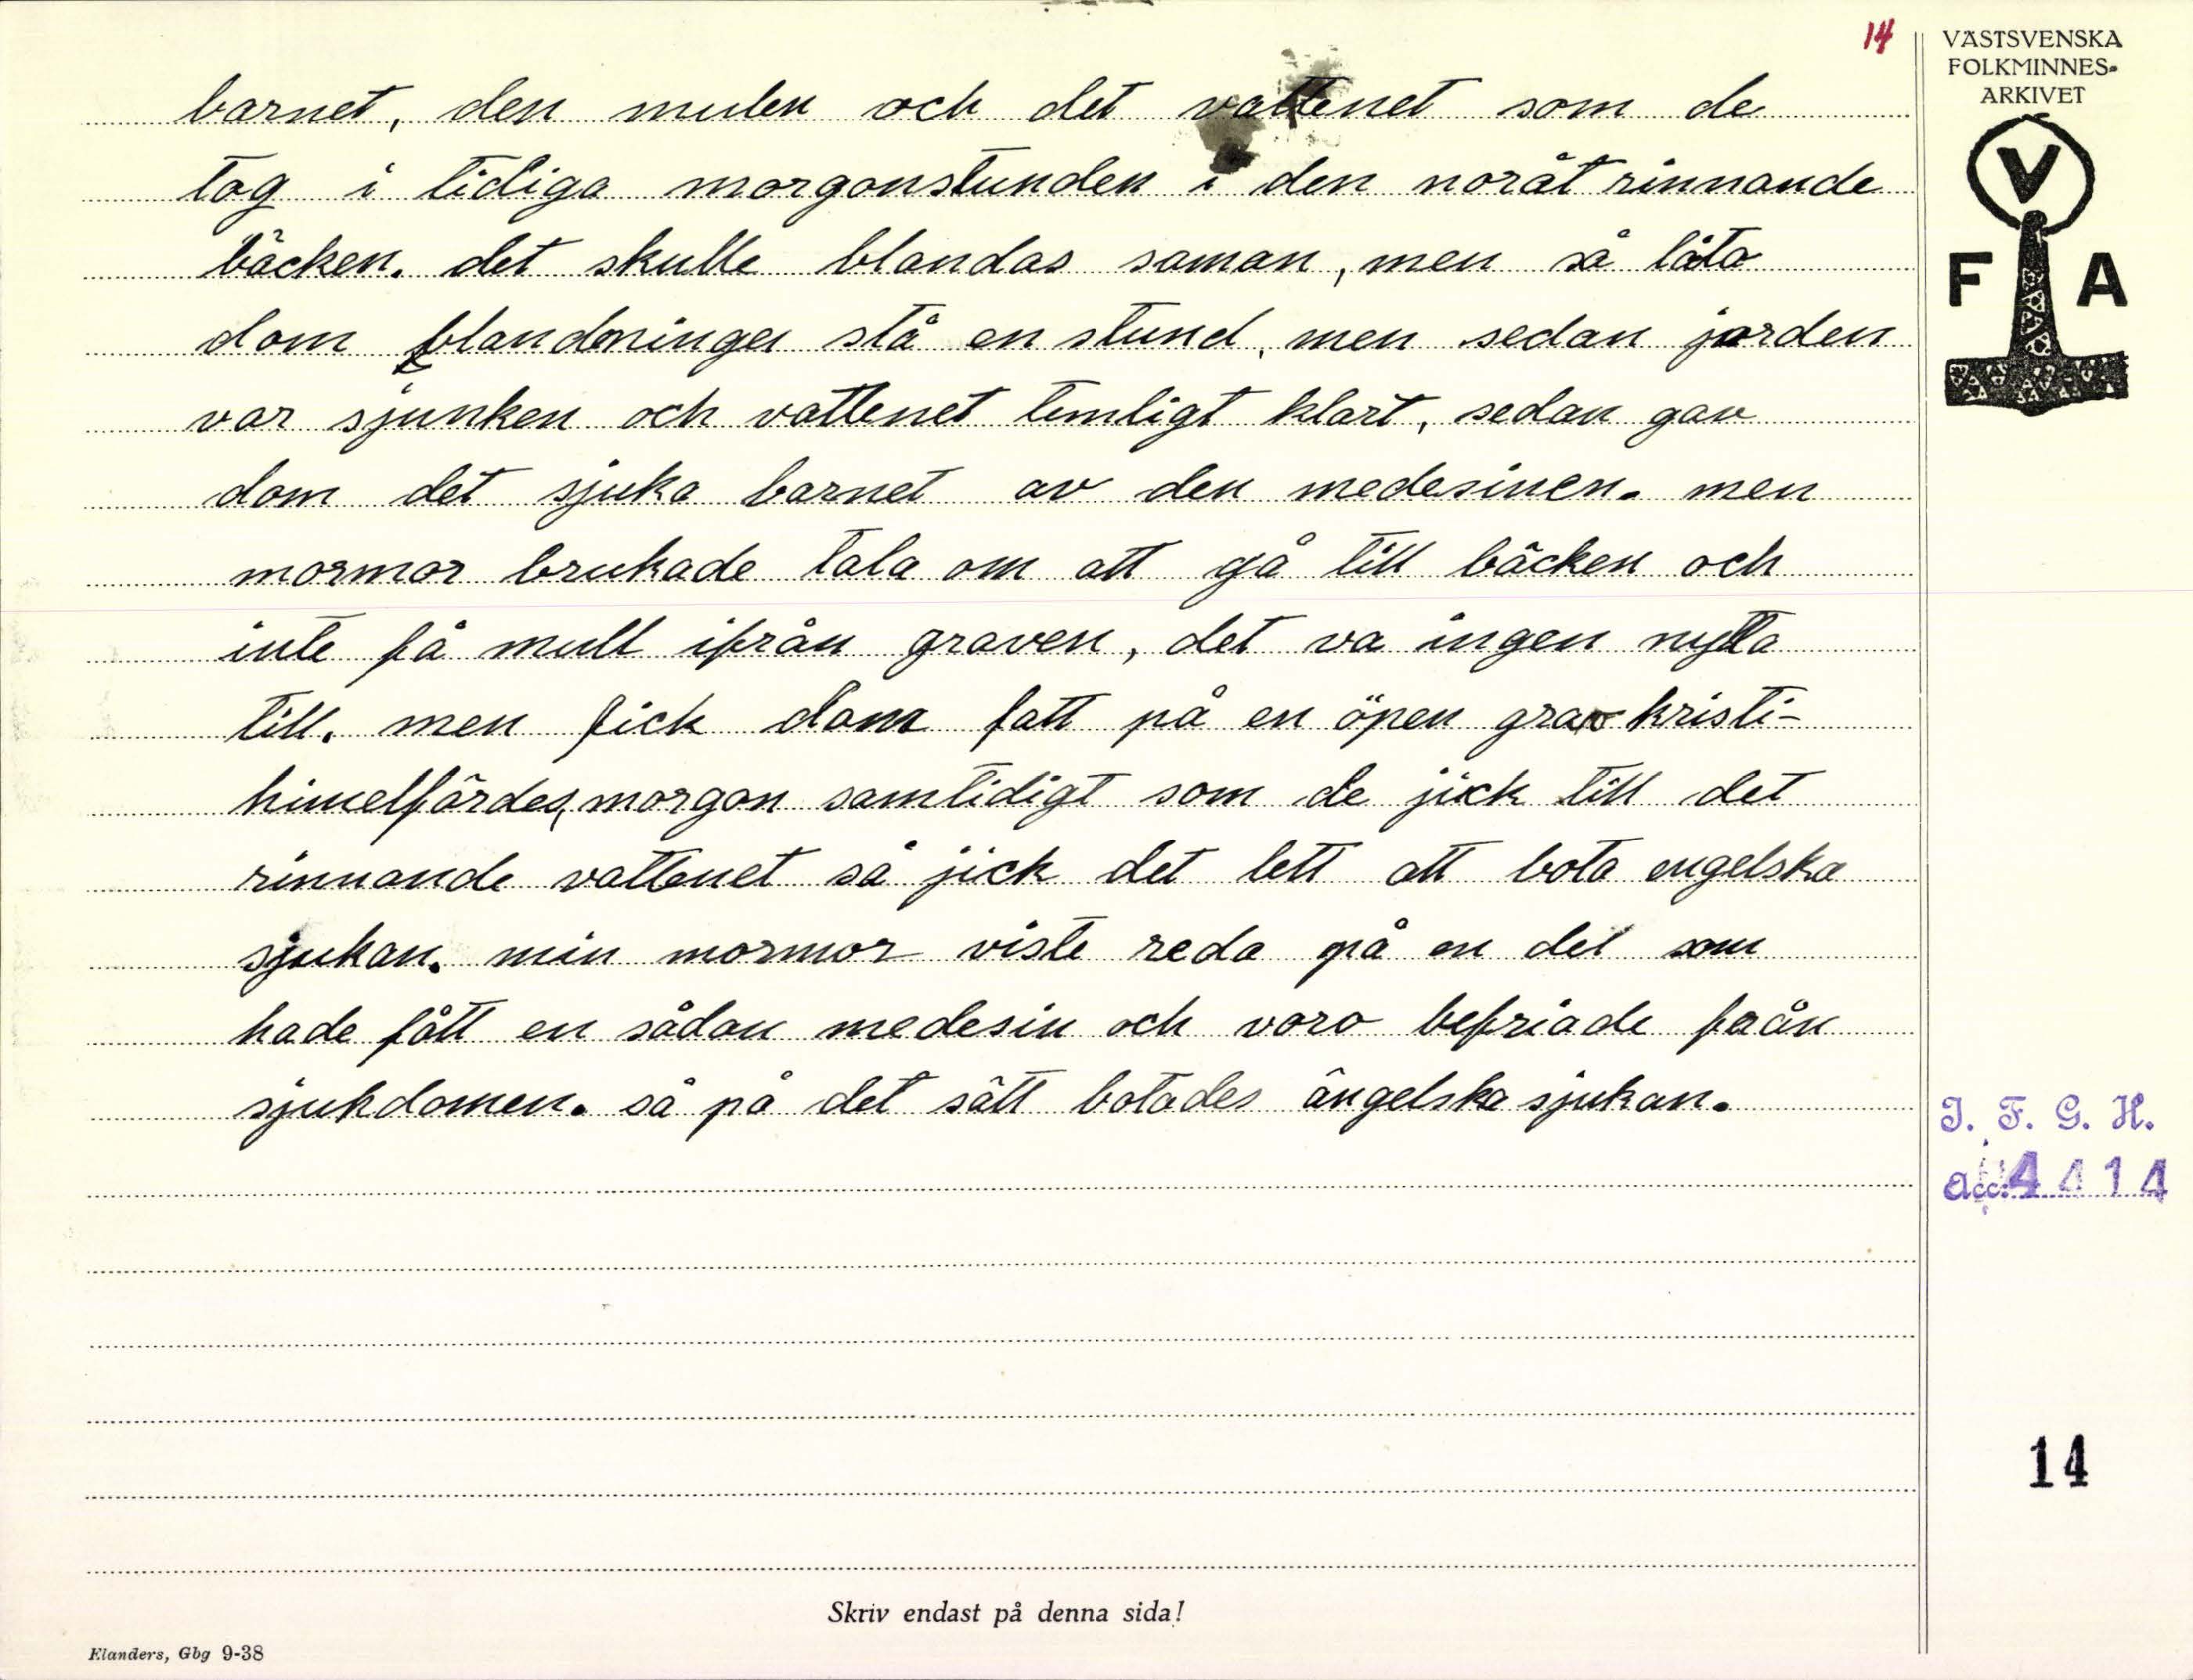 14
VÄSTSVENSKA
FOLKMINNES-
ARKIVET
V
F A
barnet, den mulen och det vattenet som de
tog i tidiga morgonstunden i den noråt rinnande
bäcken. det skulle blandas saman, men så låta
dom blandninger stå en stund, men sedan jorden
var sjunken och vattenet temligt klart, sedan gav
dom det sjuka barnet av den medesinen. men
mormor brukade tala om att gå till bäcken och
inte få mull ifrån graven, det va ingen nytta
till. men fick dom fatt på en öpen grav kristi-
himelfärdes morgon samtidigt som de jick till det
rinnande vattenet så jick det lett att bota engelska
sjukan. min mormor viste reda på en del som
hade fått en sådan medesin och voro befriade från
sjukdomen. så på det sätt botades ängelska sjukan.
I. F. G. H.
acc. 4414
14
Skriv endast på denna sida!
Elanders, Gbg 9-38